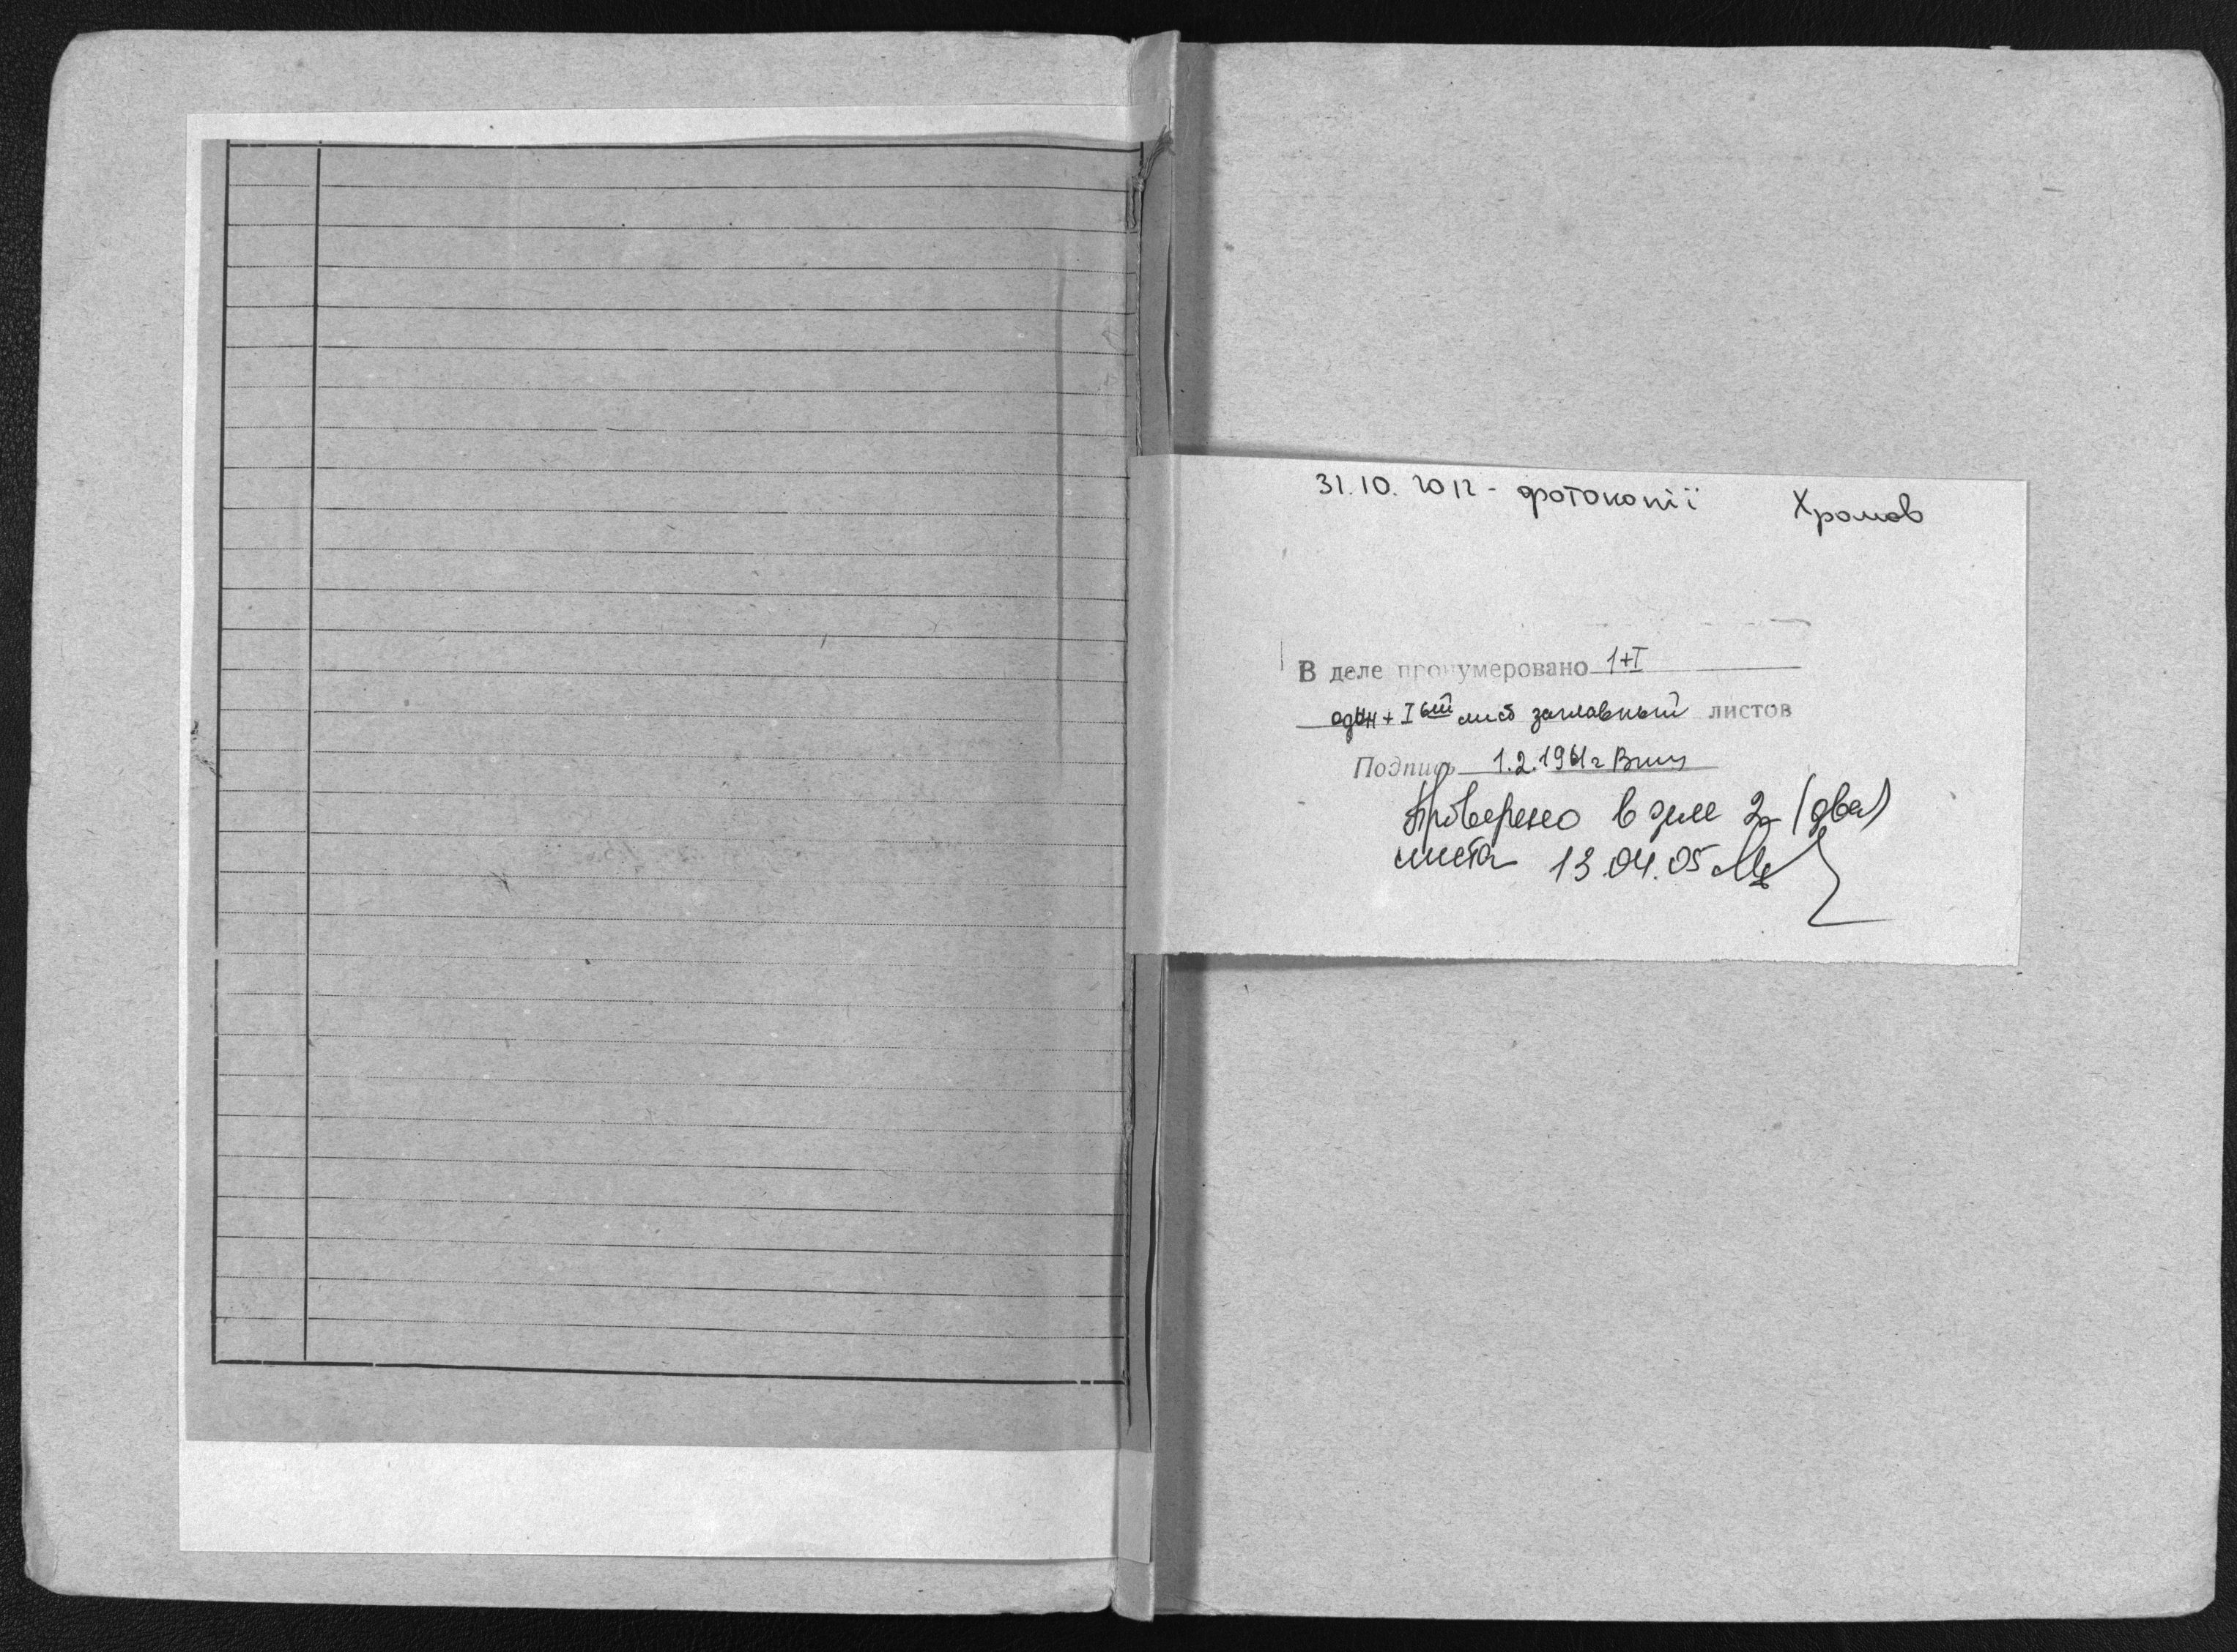 31.10.2012 - фотокопії Хромов
В деле пронумеровано 1+I
один + I ый лист заглавный листов
Подпись 1.2.1961г
Проверено в деле 2 (два)
листа 13.04.05